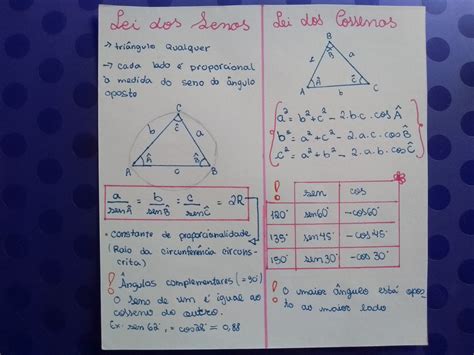 Lei dos Senos
→ triângulo qualquer
→ cada lado é proporcional
à medida do seno do ângulo
oposto
C
Ĉ
b a
Â B̂
A c B
a/senÂ = b/senB̂ = c/senĈ = 2R
• constante de proporcionalidade
(Raio da circunferência circuns-
crita)
! Ângulas complementares (=90°)
O seno de um é igual ao
cosseno do outro.
Ex: sen 62° = cos28° = 0,88
Lei dos Cossenos
B
B̂
c a
Â Ĉ
A b C
a² = b² + c² - 2.b.c.cosÂ
b² = a² + c² - 2.a.c.cosB̂
c² = a² + b² - 2.a.b.cosĈ
! sen cos
120° sen60° -cos60°
135° sen45° -cos45°
150° sen30° -cos30°
! O maior ângulo está opos-
to ao maior lado